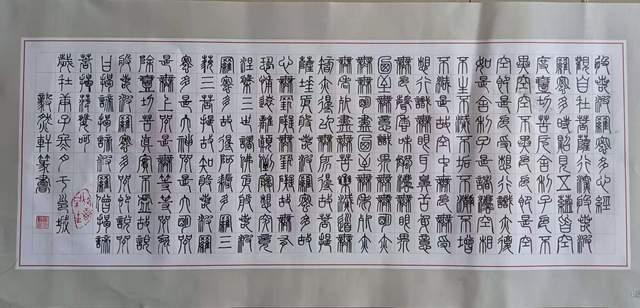 般若波羅蜜多心經
觀自在菩薩行深般若波
羅蜜多時照見五蘊皆空
度一切苦厄舍利子色不
異空空不異色色即是空
空即是色受想行識亦復
如是舍利子是諸法空相
不生不滅不垢不淨不增
不減是故空中無色無受
想行識無眼耳鼻舌身意
無色聲香味觸法無眼界
乃至無意識界無無明亦
無無明盡乃至無老死亦
無老死盡無苦集滅道無
智亦無得以無所得故菩提
薩埵依般若波羅蜜多故
心無罣礙無罣礙故無有
恐怖遠離顛倒夢想究竟
涅槃三世諸佛依般若波
羅蜜多故得阿耨多羅三
藐三菩提故知般若波羅
蜜多是大神咒是大明咒
是無上咒是無等等咒能
除一切苦真實不虛故說
般若波羅蜜多咒即說咒
曰揭諦揭諦波羅揭諦波羅僧揭諦
菩提薩婆訶
歲在丙午冬
軒篆書